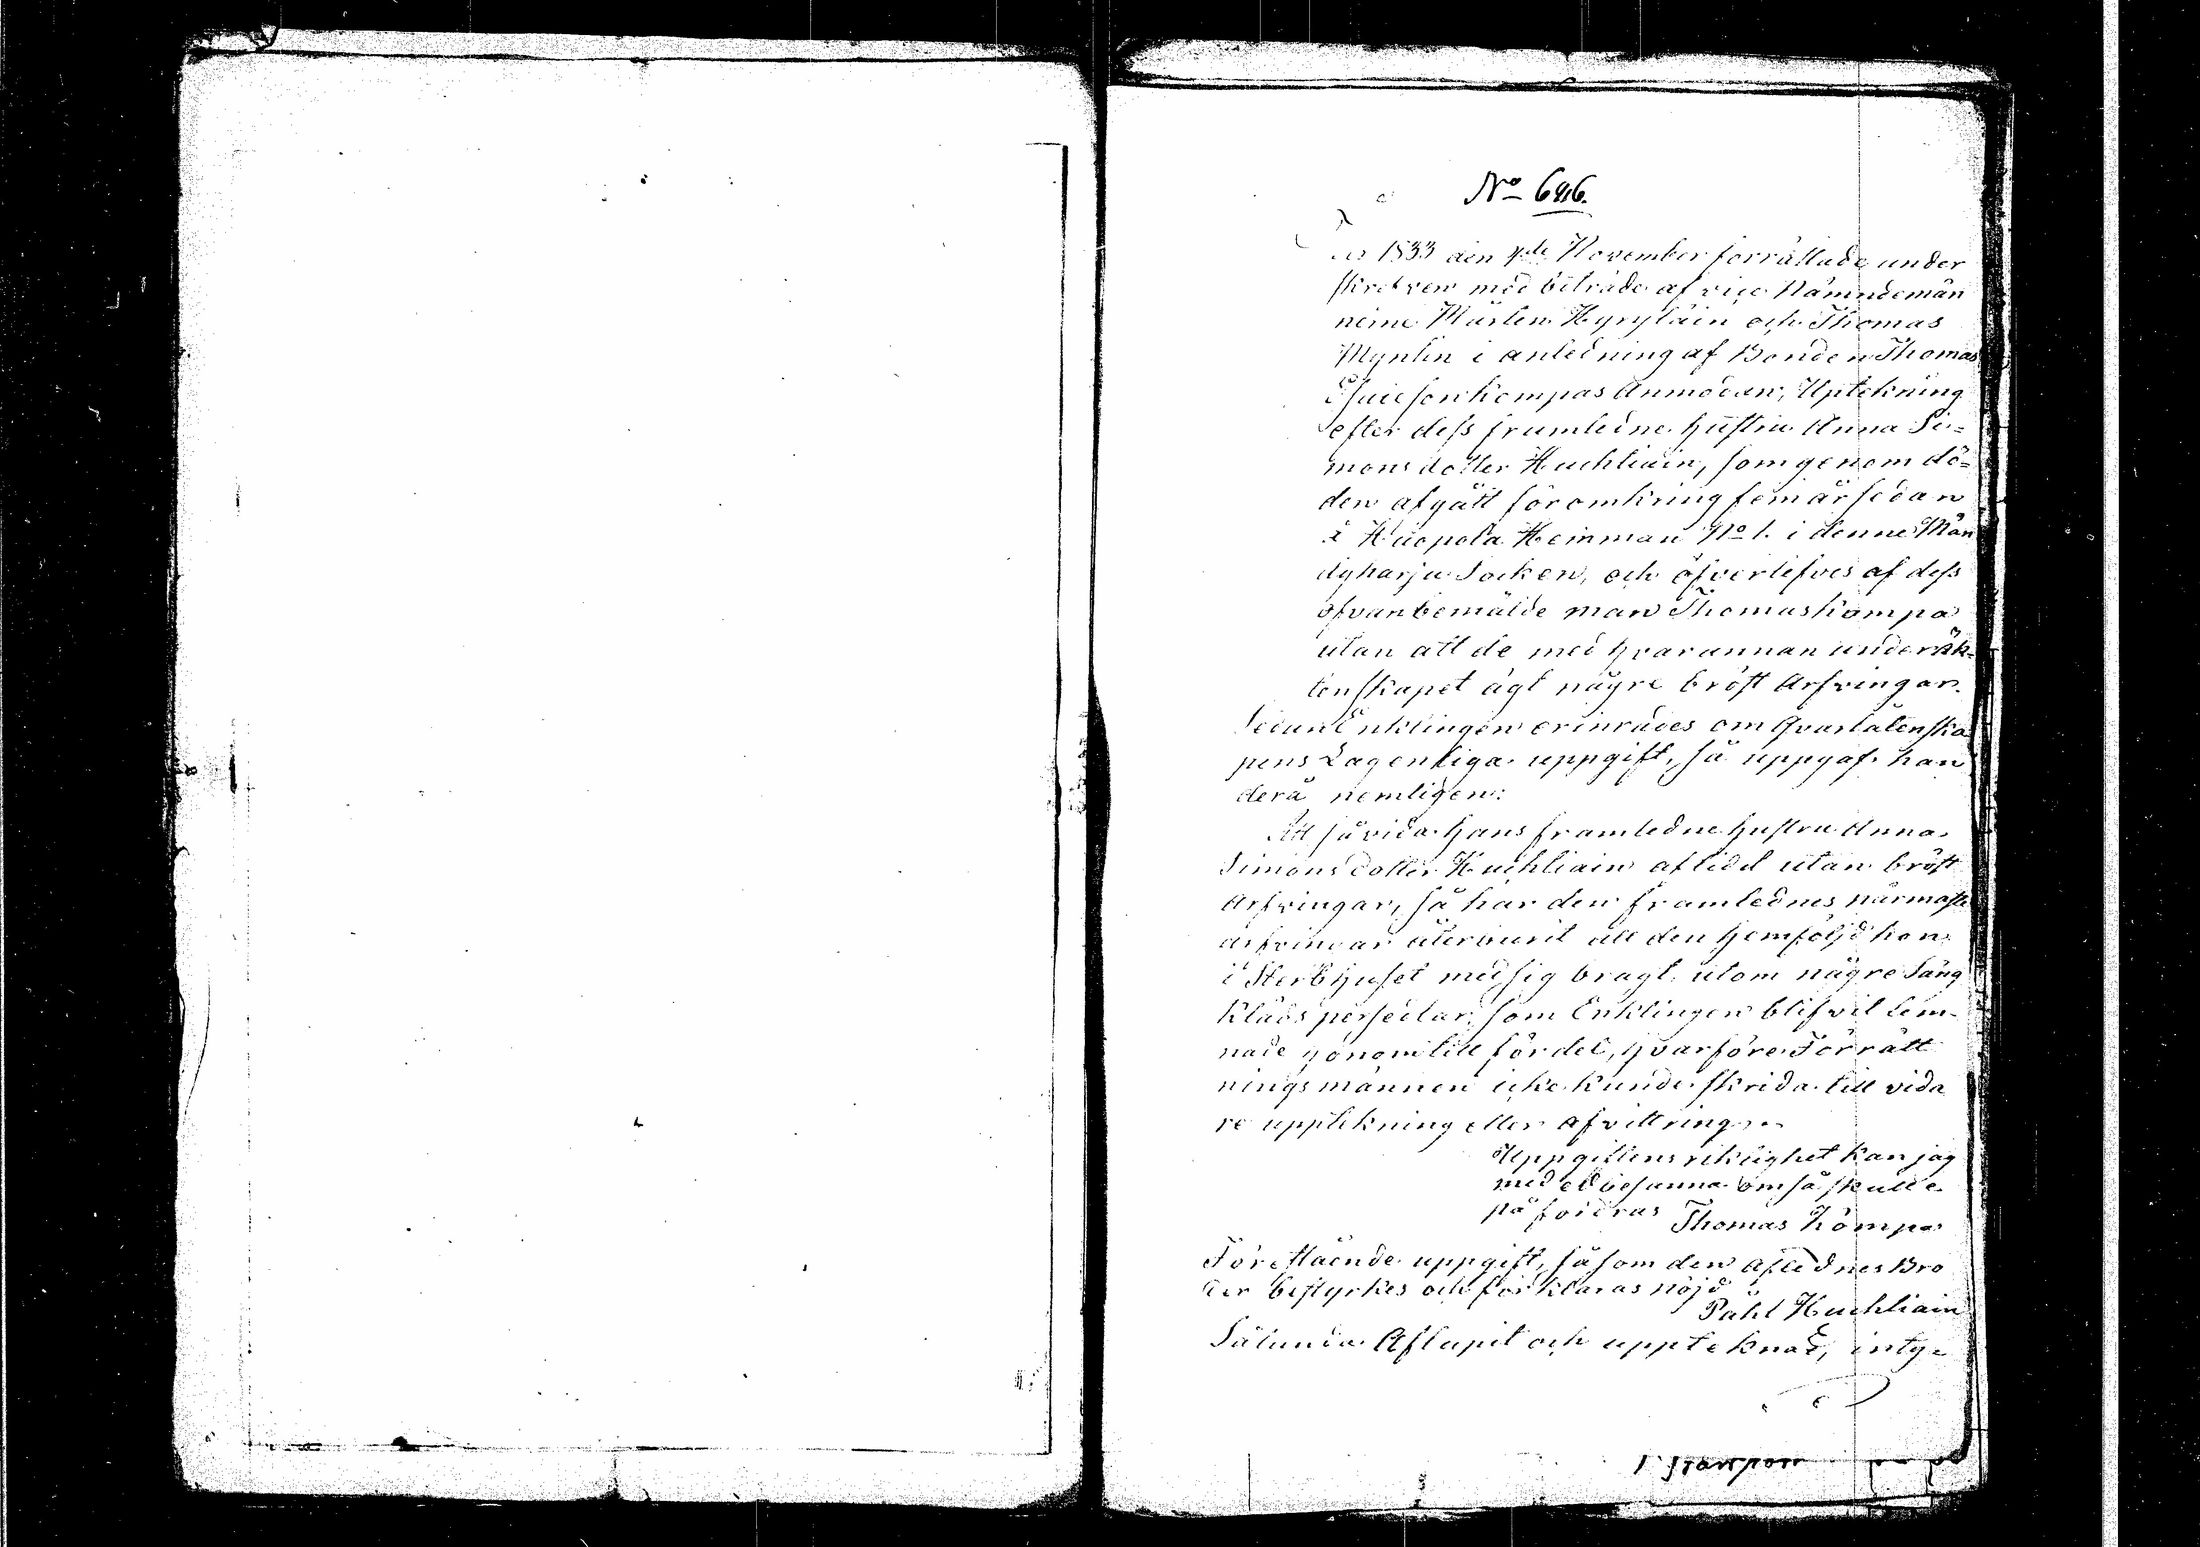 No 646.
År 1833 den 7de November förrättade under
skrefven med biträde af vice Nämndemän
nerne Mårten Hyryläin och Thomas
Myntin i anledning af Bonden Thomas
Kämpas Anmodan, Uptekning
efter dess framledne hustru Anna Si=
monsdotter Huchliain, som genom dö=
den afgått för omkring fem år sedan
i Huopola Hemman No 1. i denne Män
dyharju Socken, och öfverlefves af dess
ofvanbemälde man Thomas Kämpa
utan att de med hvarannan under äk=
tenskapet ägt någre bröst Arfvingar.
Sedan Enklingen erinrades om qvarlåtenska
pens Lagenliga uppgift, så uppgaf han
derå nemligen:
Att såvida hans framledne hustru Anna
Simonsdotter Huchliain aflidit utan bröst
Arfvingar, så har den framlednes närmaste
arfvingar återburit all den hemföljd hon
i Sterbhuset med sig bragt, utom någre Säng
kläds persedlar, som Enklingen blifvit lem-
nade honom till fördel, hvarföre Förrätt
ningsmännen icke kunde skrida till vida
re upptekning eller afvittring
Uppgiftens riktighet kan jag
med ed besanna om så skulle
påfordras Thomas Kämpa
Förestående uppgift, såsom den Aflednes Bro
der bestyrkes och förklaras nöjd
Påhl Huchliain
Sålunda Aflupit och upptecknad, inty=
Transport